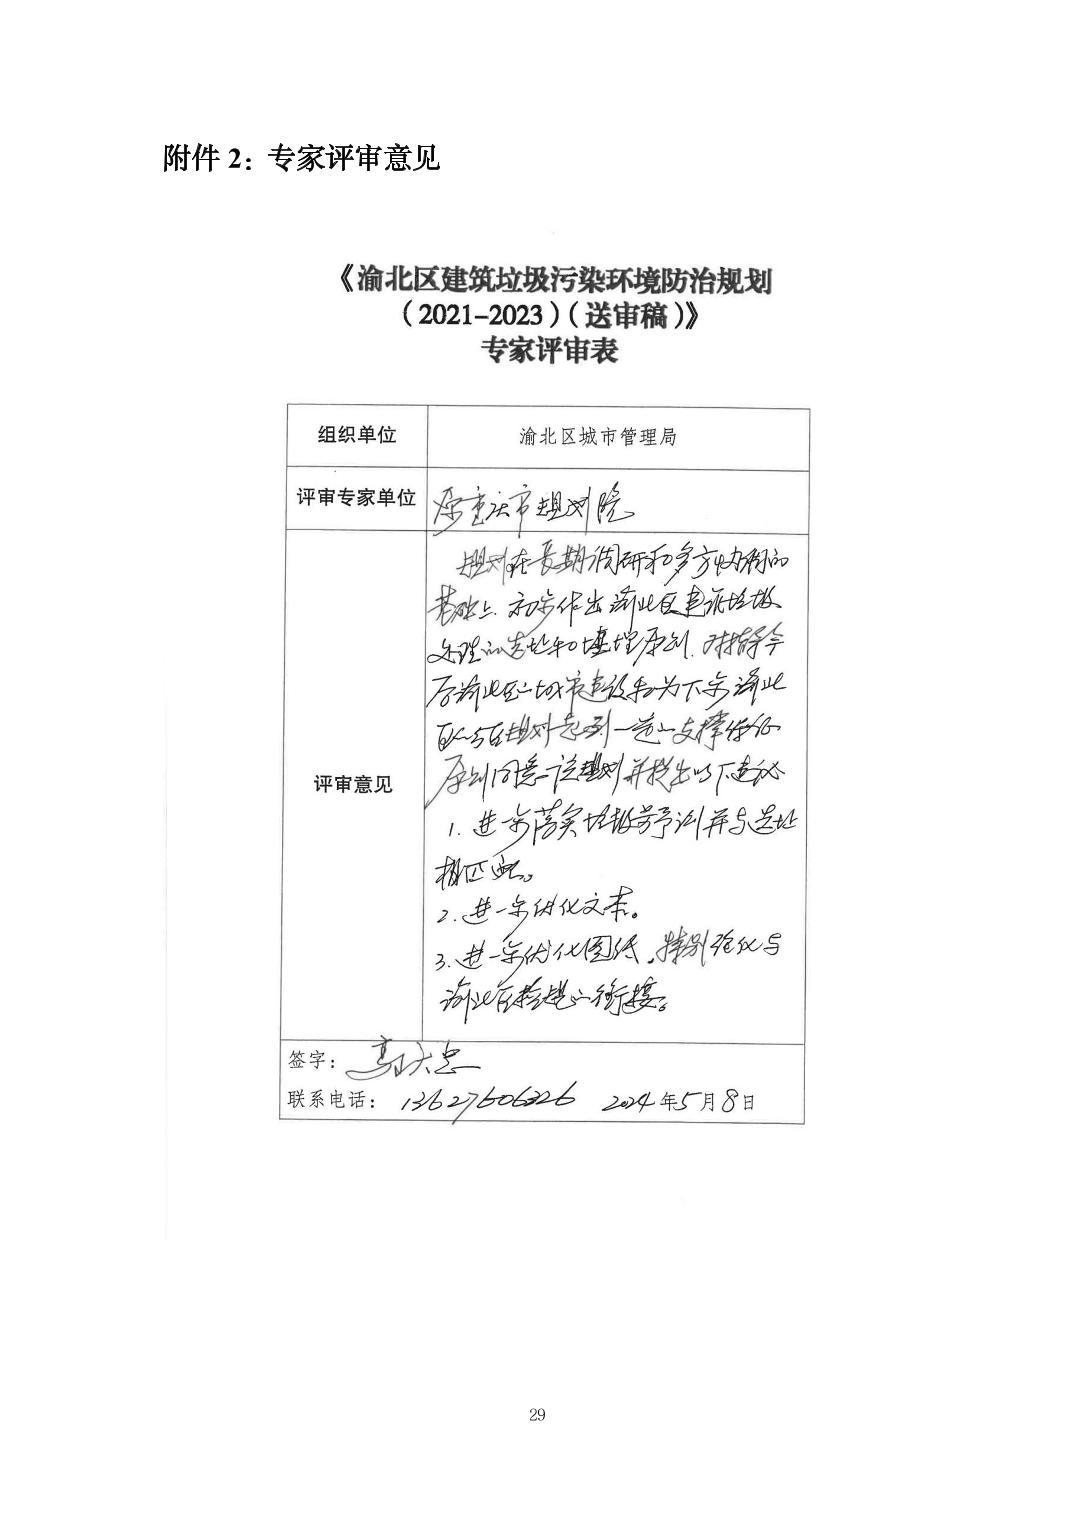 附件 2：专家评审意见
《渝北区建筑垃圾污染环境防治规划
（2021-2023）（送审稿）》
专家评审表
组织单位
渝北区城市管理局
评审专家单位
原重庆市规划院
评审意见
规划在长期调研和多方协调的
基础上，初步作出渝北区建筑垃圾
处理的选址和填埋原则，对指导今
后渝北区城市建设和为下步渝北
规划起到一定的支撑保证
原则同意该规划并提出以下建议
1.进一步落实垃圾量予测并与选址
相匹配。
2.进一步优化文本。
3.进一步优化图纸，特别强化与
渝北区控规的衔接。
签字：
联系电话：13627606326 2024年5月8日
29